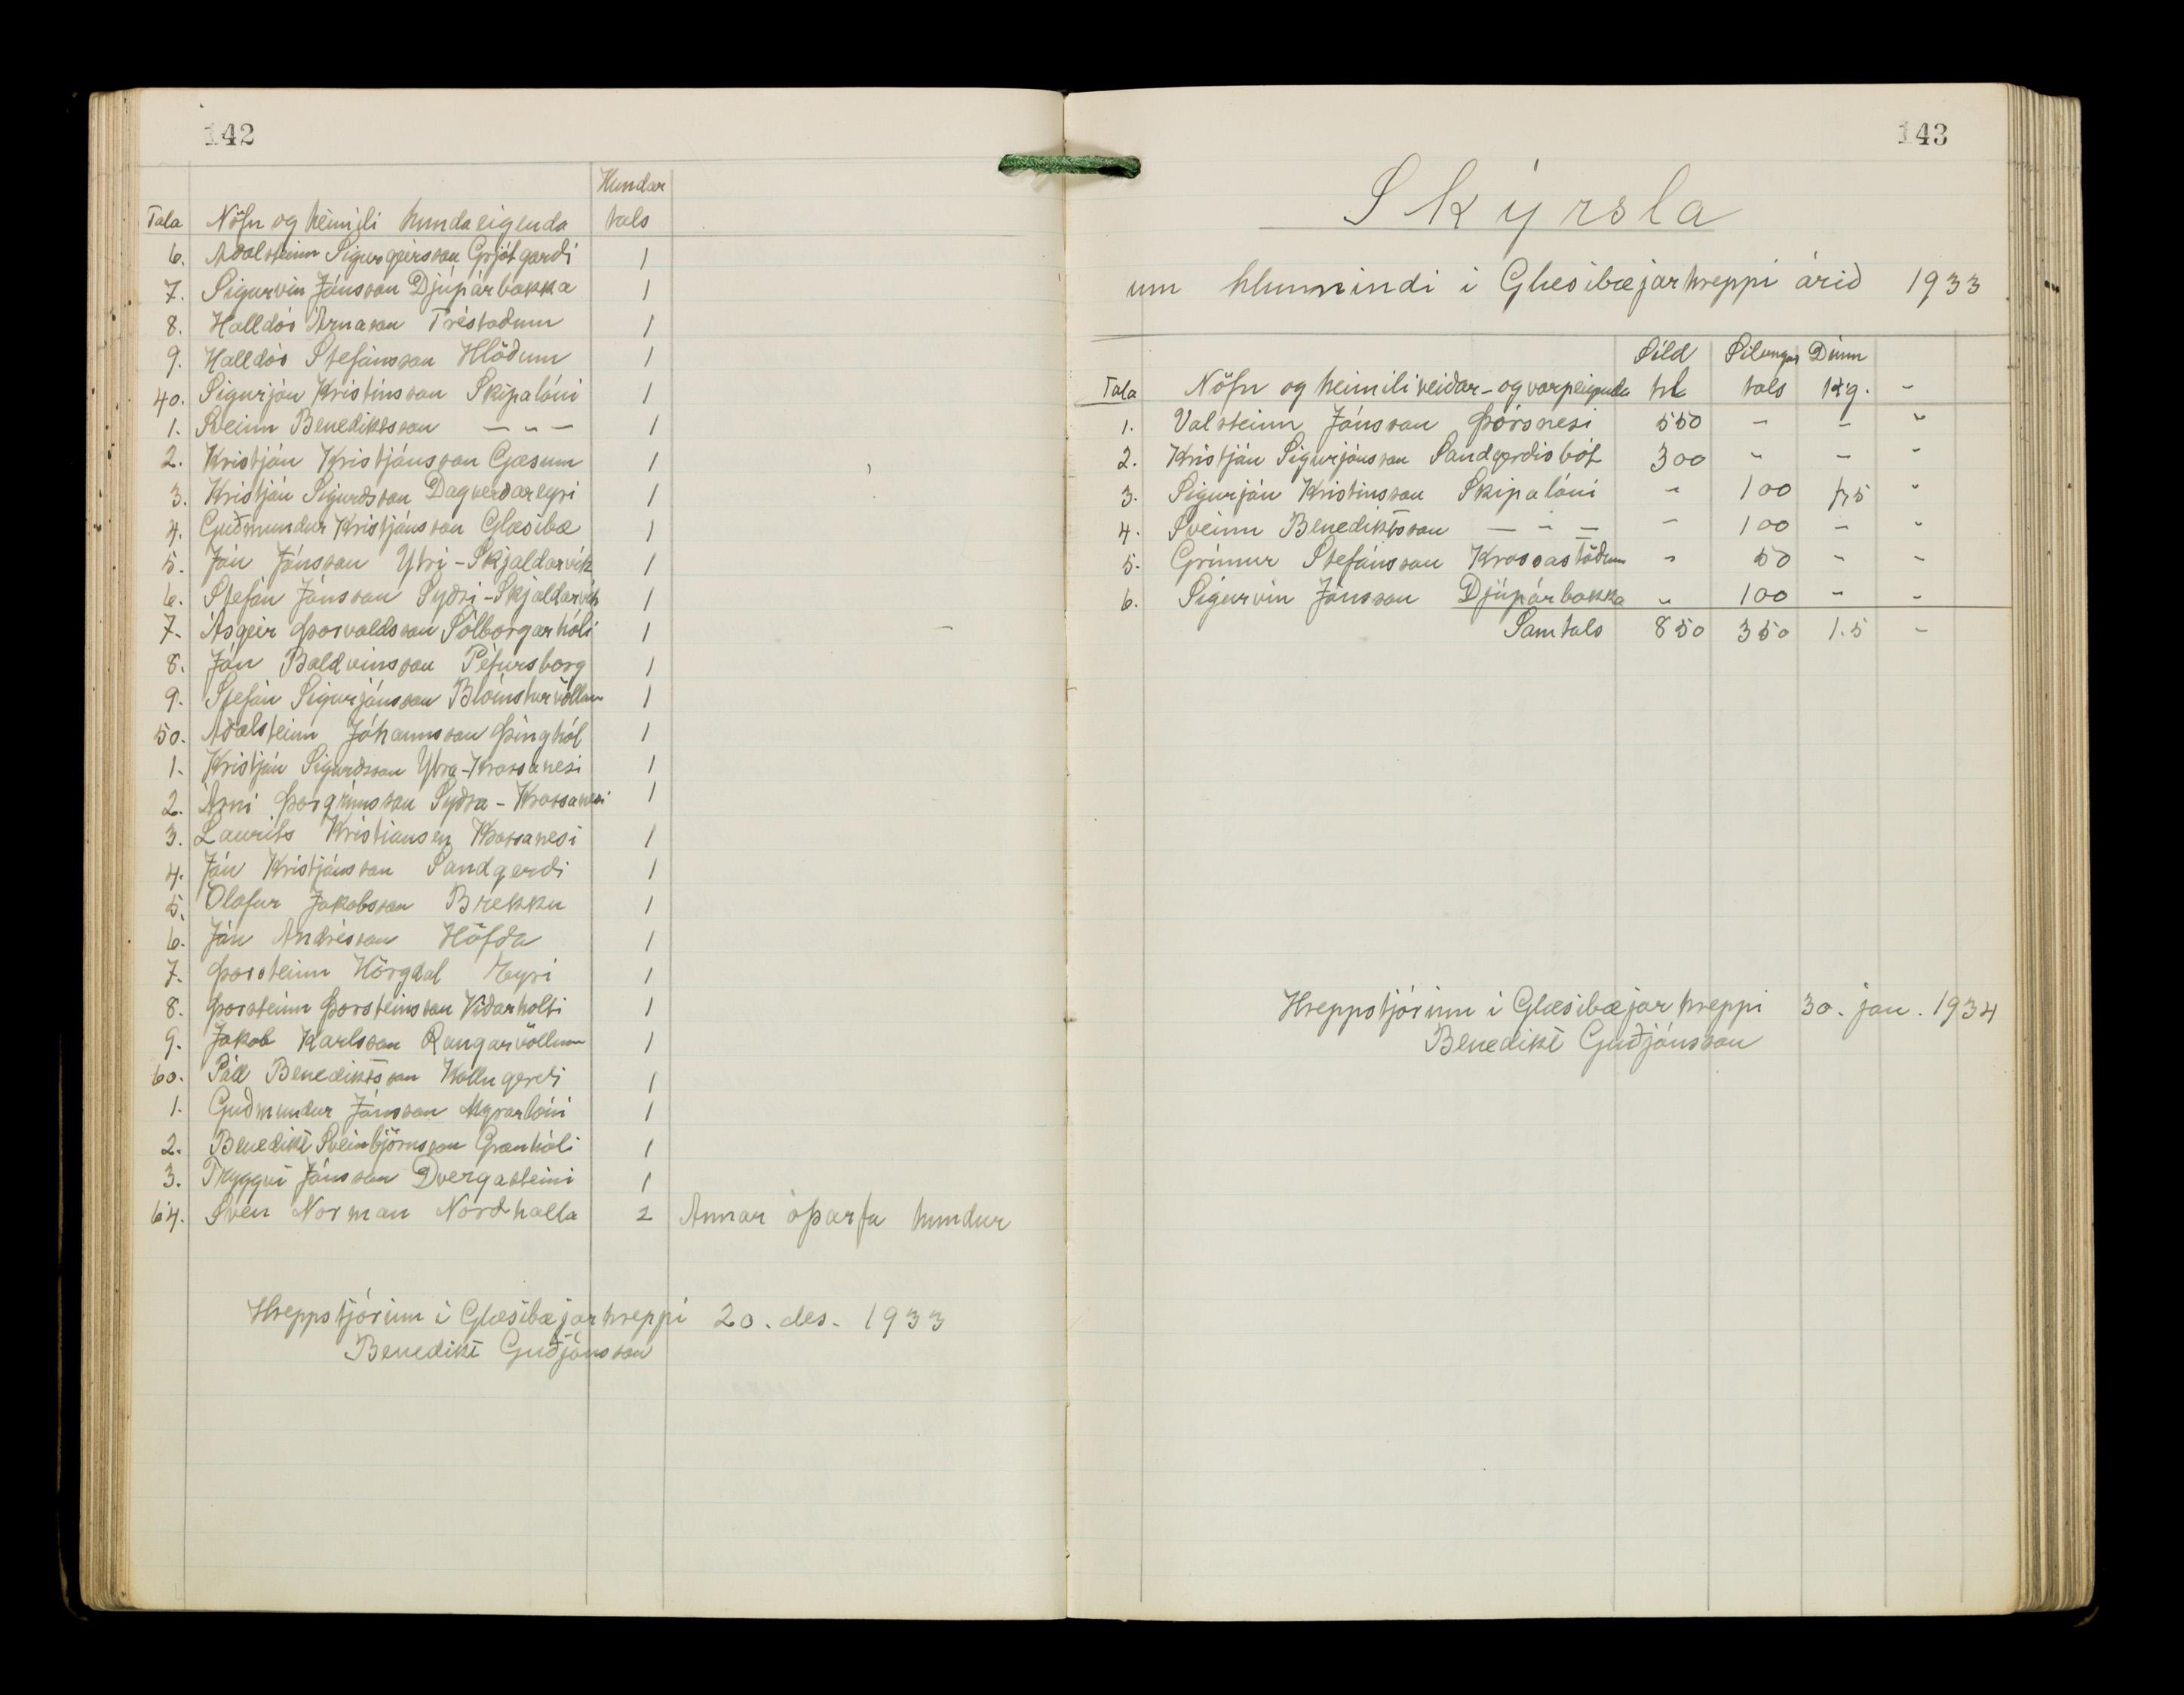 142
Hundar
Tala Nöfn og heimili hundaeigenda tals
6. Aðalsteinn Sigurgeirsson Grjótgarði 1
7. Sigurvin Jónsson Djúpárbakka 1
8. Halldór Árnason Tréstöðum 1
9. Halldór Stefánsson Hlöðum 1
40. Sigurjón Kristinsson Skipalóni 1
1. Sveinn Benediktsson — " — 1
2. Kristján Kristjánsson Gæsum 1
3. Kristján Sigurðsson Dagverðareyri 1
4. Guðmundur Kristjánsson Glæsibæ 1
5. Jón Jónsson Ytri-Skjaldarvík 1
6. Stefán Jónsson Syðri-Skjaldarvík 1
7. Ásgeir Þorvaldsson Sólborgarhóli 1
8. Jón Baldvinsson Pétursborg 1
9. Stefán Sigurjónsson Blómsturvöllum 1
50. Aðalsteinn Jóhannsson Þinghól 1
1. Kristján Sigurðsson Ytra-Krossanesi 1
2. Árni Þorgrímsson Syðra-Krossanesi 1
3. Laurits Kristiansen Krossanesi 1
4. Jón Kristjánsson Sandgerði 1
5. Ólafur Jakobsson Brekku 1
6. Jón Andrésson Höfða 1
7. Þorsteinn Hörgdal Eyri 1
8. Þorsteinn Þorsteinsson Viðarholti 1
9. Jakob Karlsson Rangárvöllum 1
60. Páll Benediktsson Kollugerði 1
1. Guðmundur Jónsson Mýrarlóni 1
2. Benedikt Sveinbjörnsson Grænhóli 1
3. Tryggvi Jónsson Dvergasteini 1
64. Sven Norman Nordhalla 2 Annar óþarfa hundur
Hreppstjórinn í Glæsibæjarhreppi 20. des. 1933
Benedikt Guðjónsson
143
Skýrsla
um hlunnindi í Glæsibæjarhreppi árið 1933
Síld Silungur Dúnn
Tala Nöfn og heimili veiðar- og varpeigenda hl tals kg. -
1. Valsteinn Jónsson Þórsnesi 550 - - "
2. Kristján Sigurjónsson Sandgerðisbót 300 " - "
3. Sigurjón Kristinsson Skipalóni " 100 1,5 "
4. Sveinn Benediktsson — " — - 100 - "
5. Grímur Stefánsson Krossastöðum " 50 - -
6. Sigurvin Jónsson Djúpárbakka " 100 - -
Samtals 850 350 1.5 -
Hreppstjórinn í Glæsibæjarhreppi 30. jan. 1934
Benedikt Guðjónsson